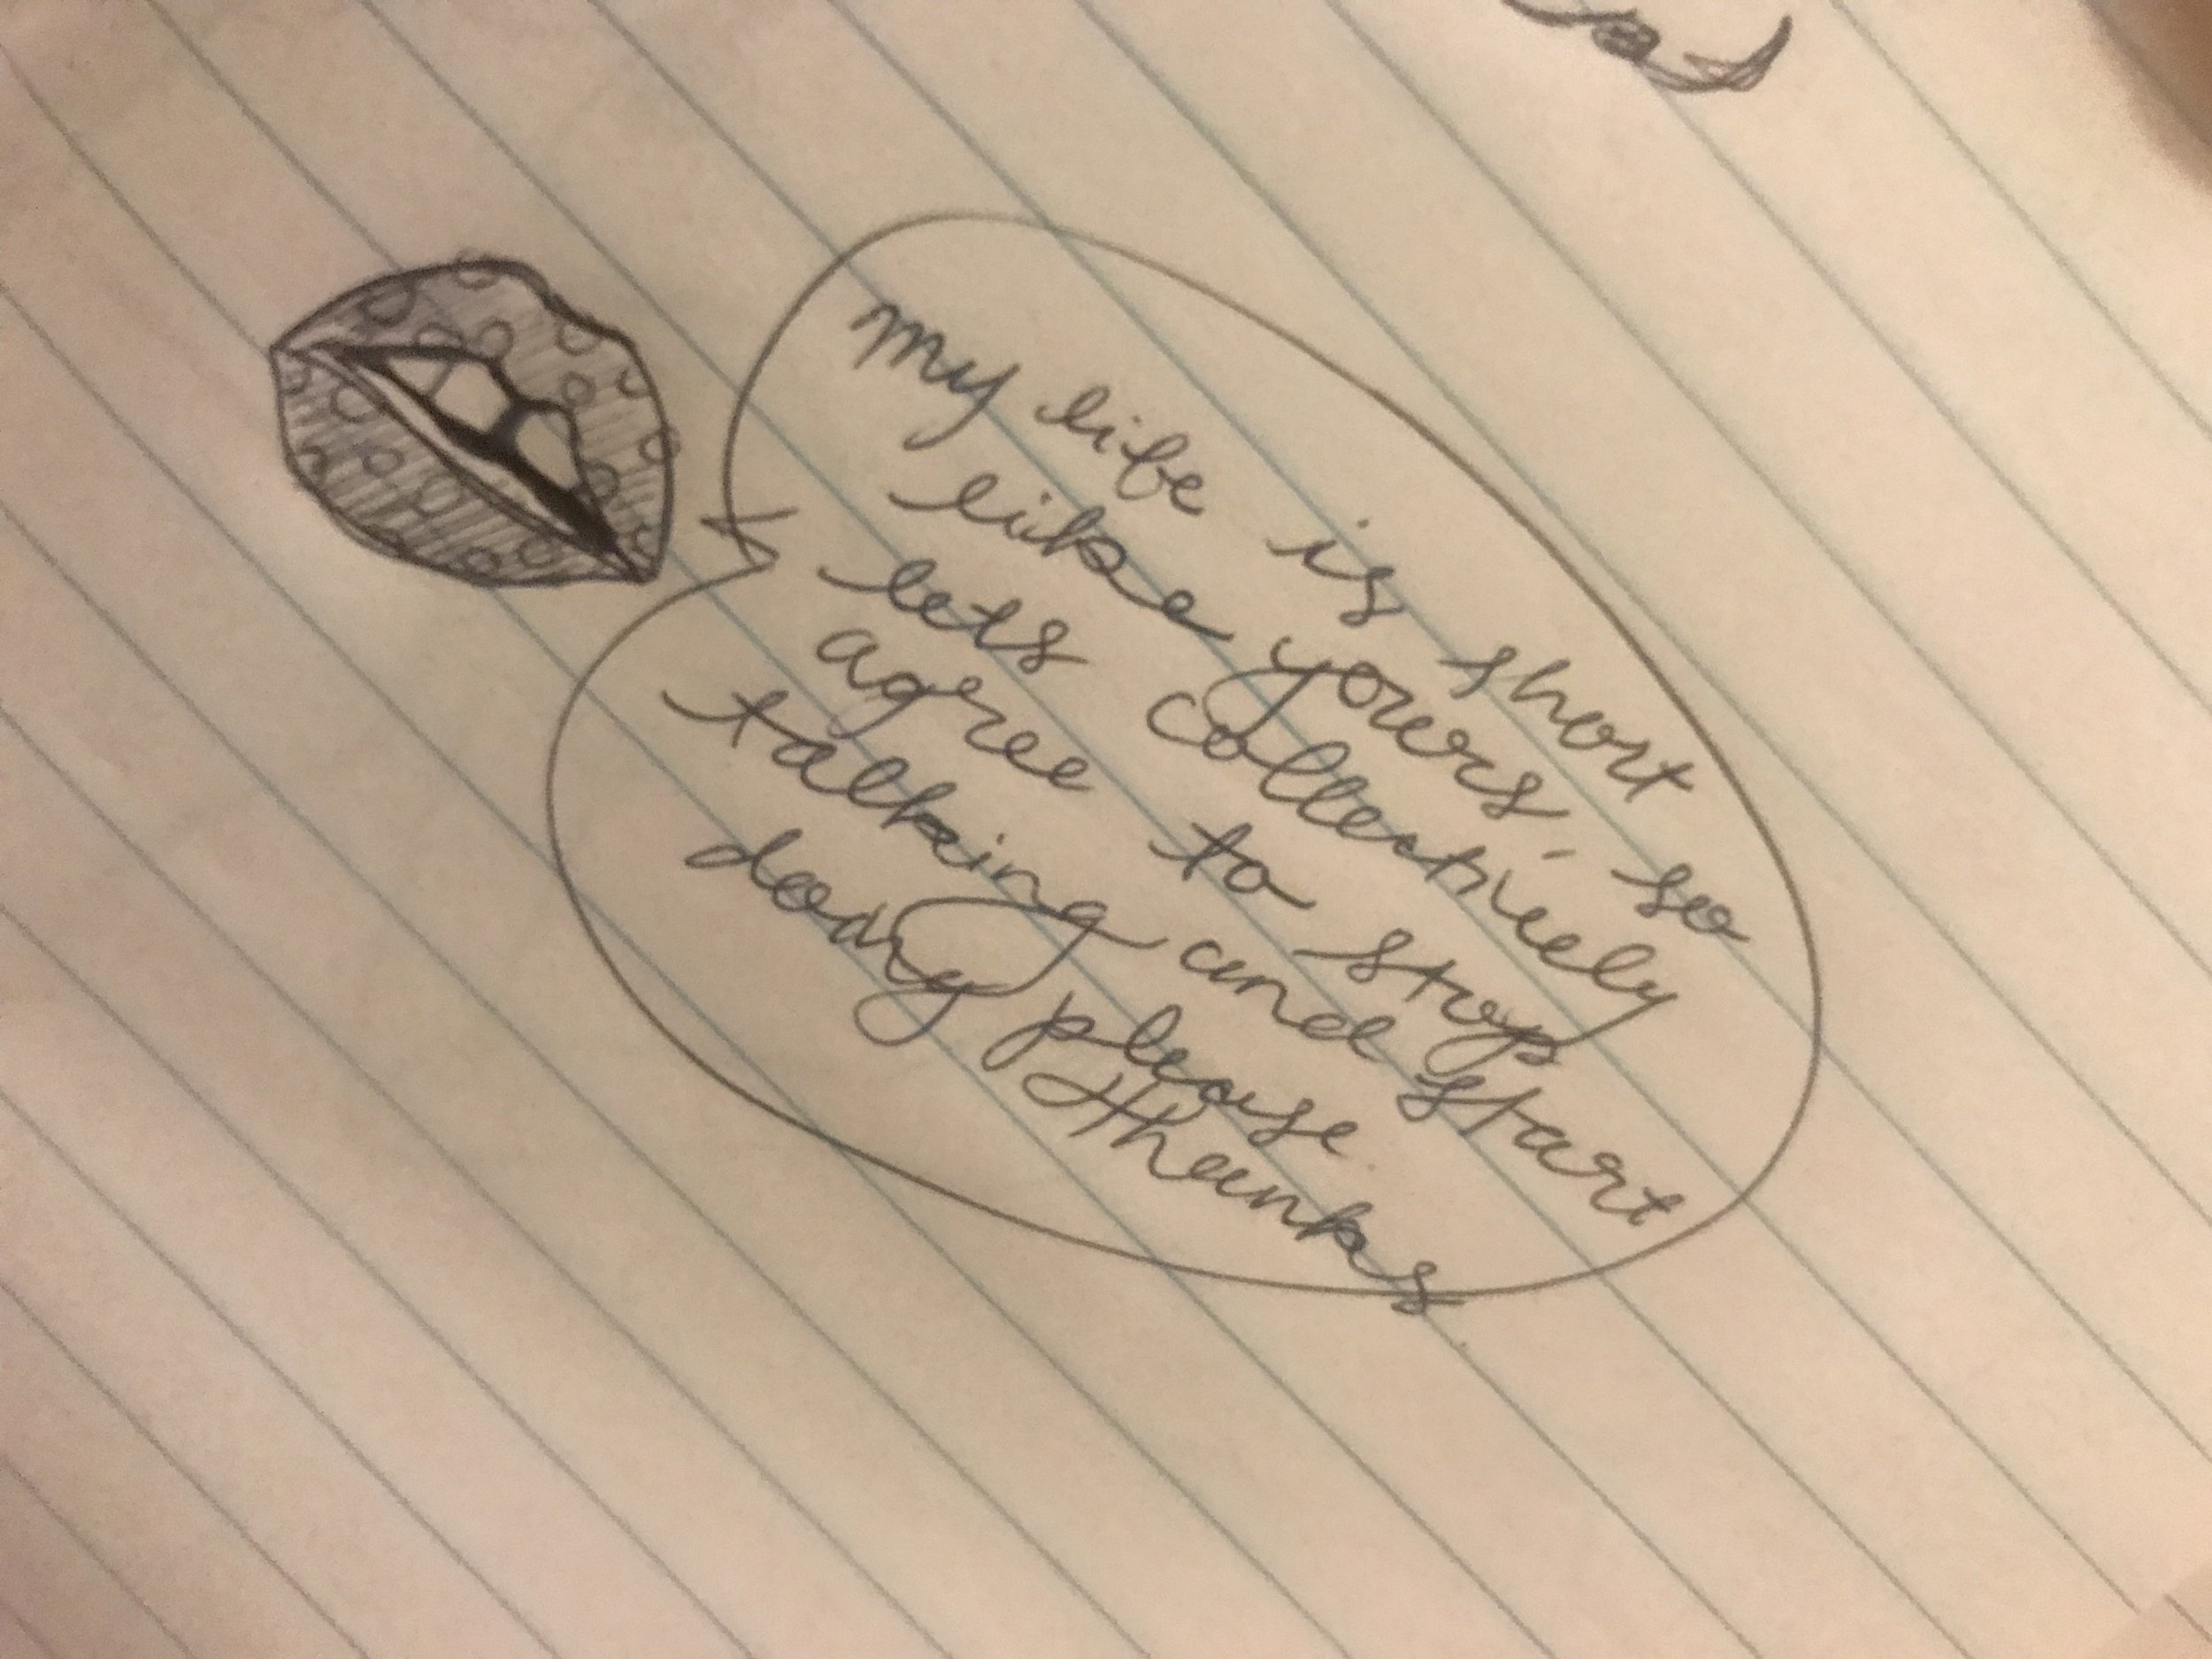 my life is short
like yours, so
lets collectively
agree to stop
talking and start
doing please.
thanks.